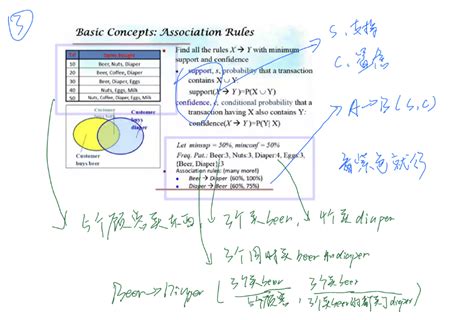 3
Basic Concepts: Association Rules
Tid Items bought
10 Beer, Nuts, Diaper
20 Beer, Coffee, Diaper
30 Beer, Diaper, Eggs
40 Nuts, Eggs, Milk
50 Nuts, Coffee, Diaper, Eggs, Milk
Customer buys diaper
Customer buys beer
Find all the rules X → Y with minimum
support and confidence
support, s, probability that a transaction
contains X ∪ Y
support(X → Y)=P(X ∪ Y)
confidence, c, conditional probability that a
transaction having X also contains Y:
confidence(X → Y)=P(Y| X)
Let minsup = 50%, minconf = 50%
Freq. Pat.: Beer:3, Nuts:3, Diaper:4, Eggs:3,
{Beer, Diaper}:3
Association rules: (many more!)
Beer → Diaper (60%, 100%)
Diaper → Beer (60%, 75%)
S.支持
C.置信
A→B (s,c)
看紫色就行
5个顾客买东西, 3个买beer, 4个买diaper
3个同时买beer和diaper
Beer→Diaper (3个买beer/5个顾客, 3个买beer/3个买beer的都买了diaper)